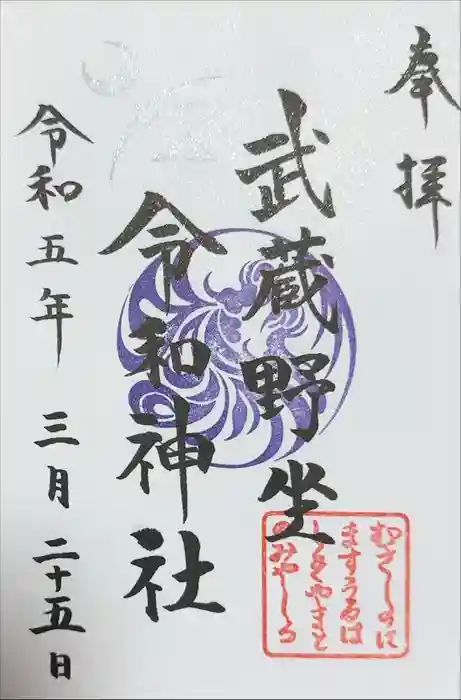 奉拝
武蔵野坐
令和神社
令和五年 三月 二十五日
むさしのに
ますうるは
しきやまと
のみやしろ